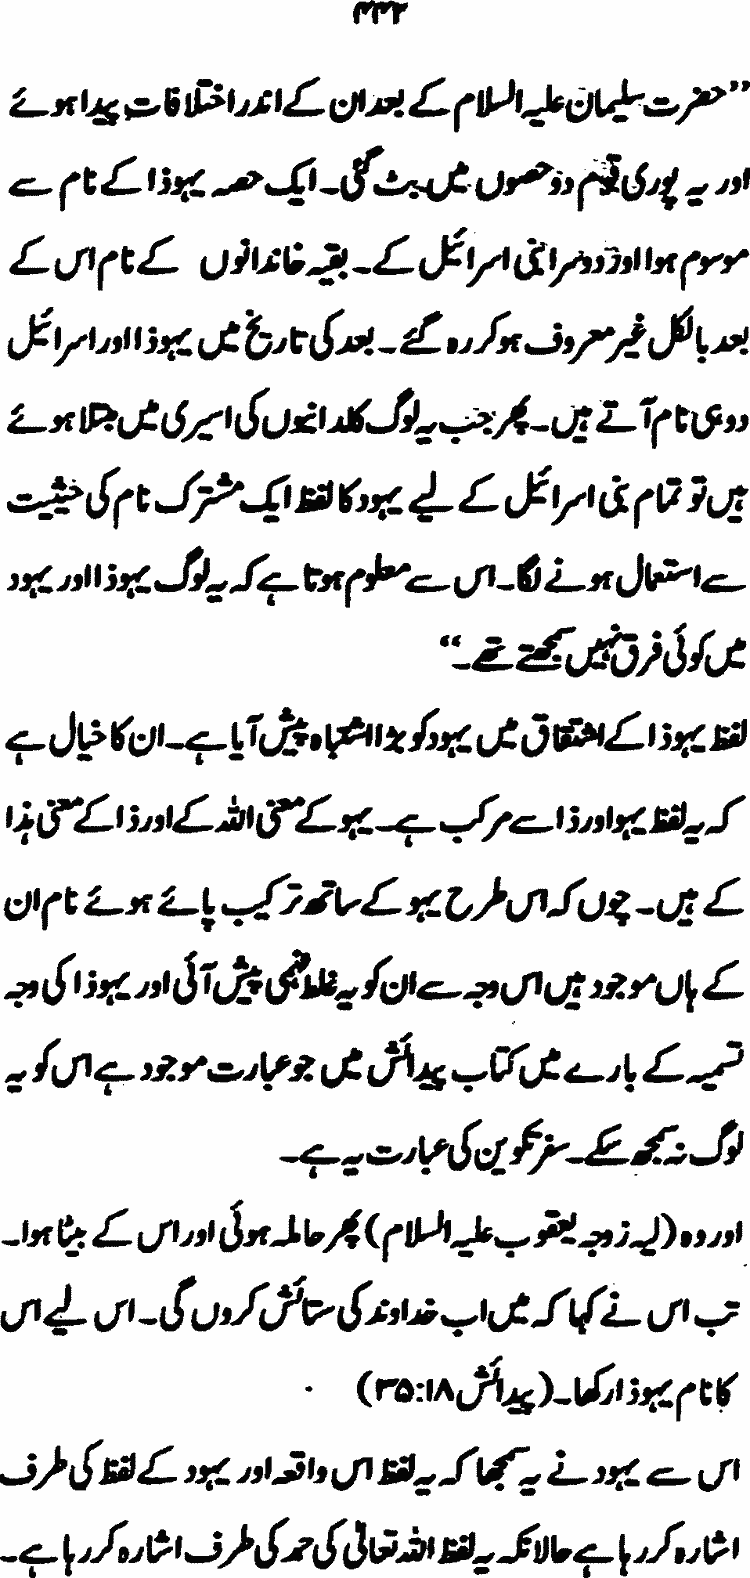 ۴۳۲
’’حضرت سلیمان علیہ السلام کے بعد ان کے اندر اختلافات پیدا ہوئے
اور یہ پوری قوم دو حصوں میں بٹ گئی۔ ایک حصہ یہوذا کے نام سے
موسوم ہوا اور دوسرا بنی اسرائیل کے۔ بقیہ خاندانوں کے نام اس کے
بعد بالکل غیر معروف ہو کر رہ گئے۔ بعد کی تاریخ میں یہوذا اور اسرائیل
دو ہی نام آتے ہیں۔ پھر جب یہ لوگ کلدانیوں کی اسیری میں مبتلا ہوئے
ہیں تو تمام بنی اسرائیل کے لیے یہود کا لفظ ایک مشترک نام کی حیثیت
سے استعمال ہونے لگا۔ اس سے معلوم ہوتا ہے کہ یہ لوگ یہوذا اور یہود
میں کوئی فرق نہیں سمجھتے تھے۔‘‘
لفظ یہوذا کے اشتقاق میں یہود کو بڑا اشتباہ پیش آیا ہے۔ ان کا خیال ہے
کہ یہ لفظ یہو اور ذا سے مرکب ہے۔ یہو کے معنی اللہ کے اور ذا کے معنی ہذا
کے ہیں۔ چوں کہ اس طرح یہو کے ساتھ ترکیب پائے ہوئے نام ان
کے ہاں موجود ہیں اس وجہ سے ان کو یہ غلط فہمی پیش آئی اور یہوذا کی وجہ
تسمیہ کے بارے میں کتاب پیدائش میں جو عبارت موجود ہے اس کو یہ
لوگ نہ سمجھ سکے۔ سفر تکوین کی عبارت یہ ہے۔
اور وہ (لیہ زوجہ یعقوب علیہ السلام) پھر حاملہ ہوئی اور اس کے بیٹا ہوا۔
تب اس نے کہا کہ میں اب خداوند کی ستائش کروں گی۔ اس لیے اس
کا نام یہوذا رکھا۔ (پیدائش ۱۸:۳۵)
اس سے یہود نے یہ سمجھا کہ یہ لفظ اس واقعہ اور یہود کے لفظ کی طرف
اشارہ کر رہا ہے حالانکہ یہ لفظ اللہ تعالیٰ کی حمد کی طرف اشارہ کر رہا ہے۔